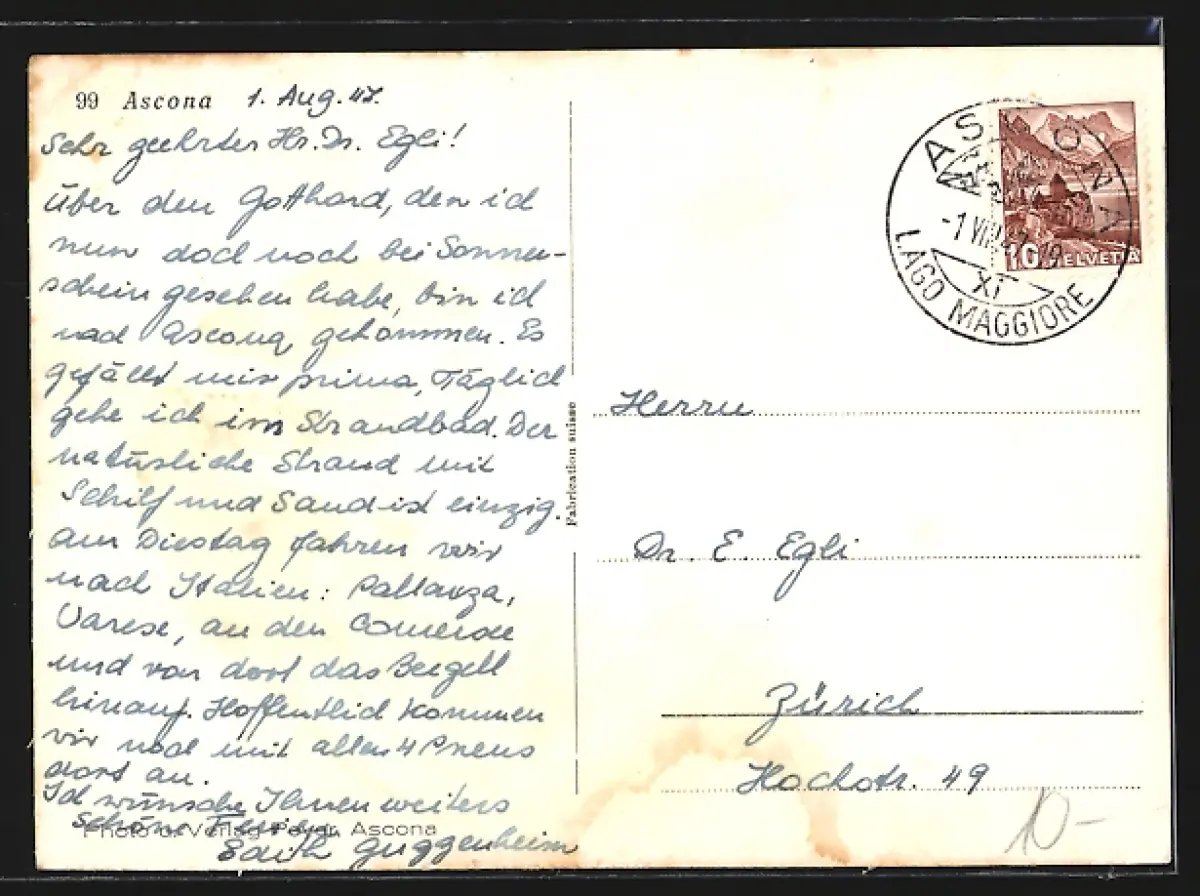 99 Ascona 1. Aug. 47.
Sehr geehrter Hr. Dr. Egli!
Über den Gotthard, den ich
nun doch noch bei Sonnen-
schein gesehen habe, bin ich
nach Ascona gekommen. Es
gefällt mir prima, Täglich
gehe ich im Strandbad. Der
natürliche Strand mit
Schilf und Sand ist einzig.
Am Diestag fahren wir
nach Italien: Pallanza,
Varese, an den Comersee
und von dort das Bergell
hinauf. Hoffentlich kommen
wir noch mit allen 4 Pneus
dort an.
Ich wünsche Ihnen weiters
schöne Ferien
Photo & Verlag Ascona
Edith Guggenheim
Fabrication suisse
ASCONA
-1 VIII
XI
LAGO MAGGIORE
10 HELVETIA
Herrn
Dr. E. Egli
Zürich
Hochstr. 49
10-